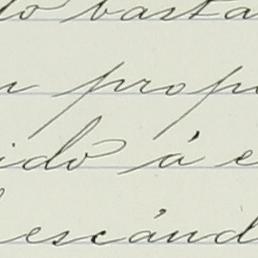 to basta
n propi
ido á e
escánd